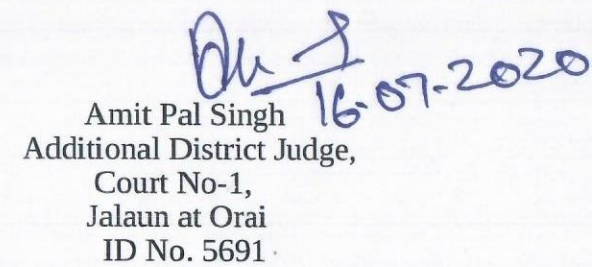 16-07-2020
Amit Pal Singh
Additional District Judge,
Court No-1,
Jalaun at Orai
ID No. 5691